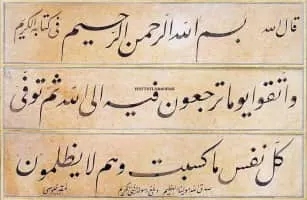 قال الله بسم الله الرحمن الرحيم في كتابه الكريم
HATTATLARSOFASI
واتقوا يوما ترجعون فيه الى الله ثم توفى
كل نفس ما كسبت وهم لا يظلمون
صدق الله